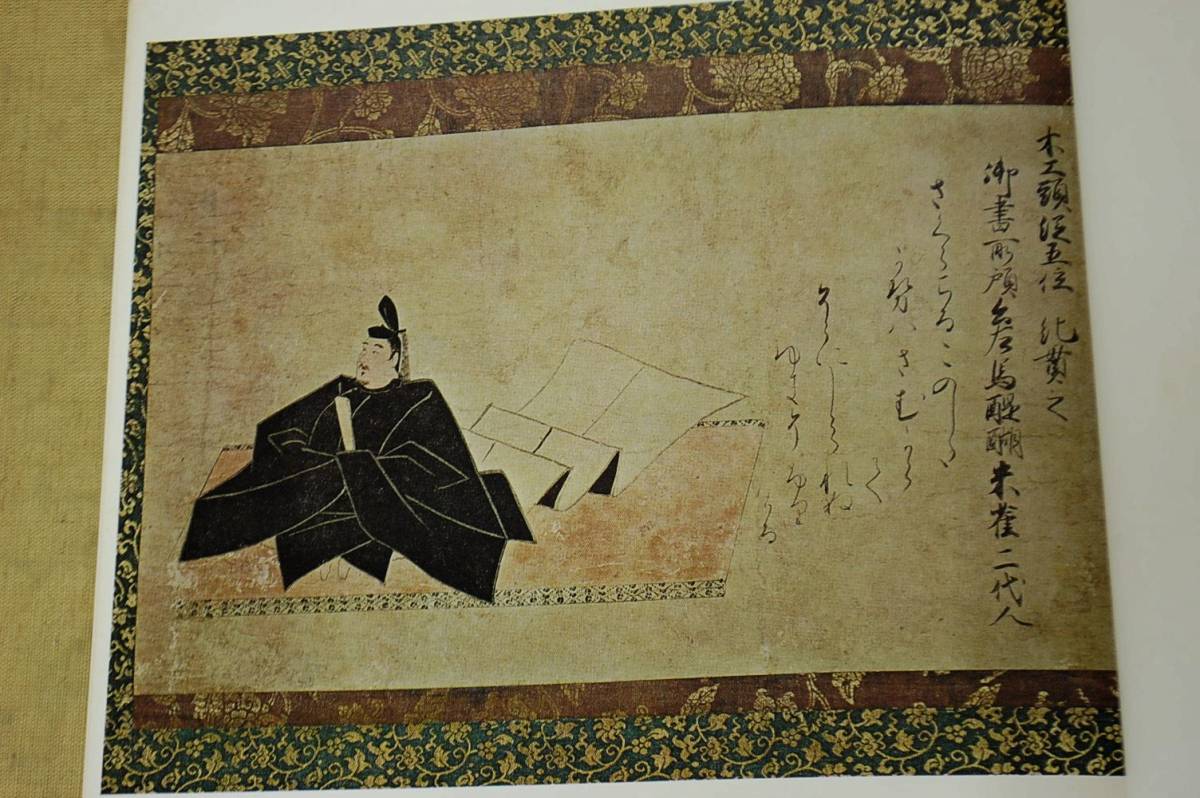 木工頭従五位 紀貫之
御書所預 醍醐朱雀二代人
さくらちるこのした
かせはさむから
て
そらにしられぬ
ゆきそふり
ける